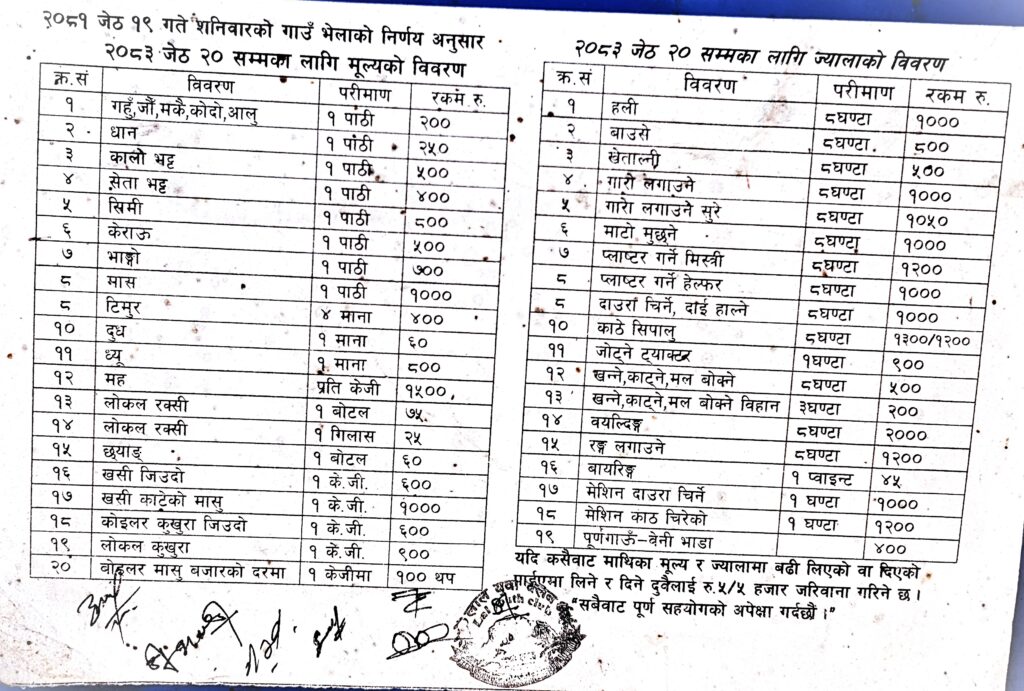 २०८१ जेठ १९ गते शनिवारको गाउँ भेलाको निर्णय अनुसार
२०८३ जेठ २० सम्मका लागि मूल्यको विवरण
क्र.सं विवरण परीमाण रकम रु.
१ गहुँ,जौं,मकै,कोदो,आलु १ पाठी २००
२ धान १ पाठी २५०
३ कालो भट्ट १ पाठी ५००
४ सेता भट्ट १ पाठी ४००
५ सिमी १ पाठी ८००
६ केराऊ १ पाठी ५००
७ भाङ्गो १ पाठी ७००
८ मास १ पाठी १०००
८ टिमुर ४ माना ४००
१० दुध १ माना ६०
११ ध्यू १ माना ८००
१२ मह प्रति केजी १५००
१३ लोकल रक्सी १ बोटल ७५
१४ लोकल रक्सी १ गिलास २५
१५ छ्याङ् १ बोटल ६०
१६ खसी जिउदो १ के.जी. ६००
१७ खसी काटेको मासु १ के.जी. १०००
१८ कोइलर कुखुरा जिउदो १ के.जी. ६००
१९ लोकल कुखुरा १ के.जी. ९००
२० बोइलर मासु बजारको दरमा १ केजीमा १०० थप
२०८३ जेठ २० सम्मका लागि ज्यालाको विवरण
क्र.सं विवरण परीमाण रकम रु.
१ हली ८घण्टा १०००
२ बाउसे ८घण्टा ८००
३ खेताल्नी ८घण्टा ५००
४ गारो लगाउने ८घण्टा १०००
५ गारो लगाउने सुरे ८घण्टा १०५०
६ माटो मुछ्ने ८घण्टा १०००
७ प्लाष्टर गर्ने मिस्त्री ८घण्टा १२००
८ प्लाष्टर गर्ने हेल्फर ८घण्टा १०००
८ दाउरा चिर्ने, दाई हाल्ने ८घण्टा १०००
१० काठे सिपालु ८घण्टा १३००/१२००
११ जोट्ने ट्याक्टर १घण्टा ९००
१२ खन्ने,काट्ने,मल बोक्ने ८घण्टा ५००
१३ खन्ने,काट्ने,मल बोक्ने विहान ३घण्टा २००
१४ वयल्दिङ्ग ८घण्टा २०००
१५ रङ्ग लगाउने ८घण्टा १२००
१६ बायरिङ्ग १ प्वाइन्ट ४५
१७ मेशिन दाउरा चिर्ने १ घण्टा १०००
१८ मेशिन काठ चिरेको १ घण्टा १२००
१९ पूर्णगाऊँ-वेनी भाडा ४००
यदि कसैवाट माथिका मूल्य र ज्यालामा बढी लिएको वा दिएको
पाईएमा लिने र दिने दुवैलाई रु.५/५ हजार जरिवाना गरिने छ।
"सबैवाट पूर्ण सहयोगको अपेक्षा गर्दछौं।"
Youth club